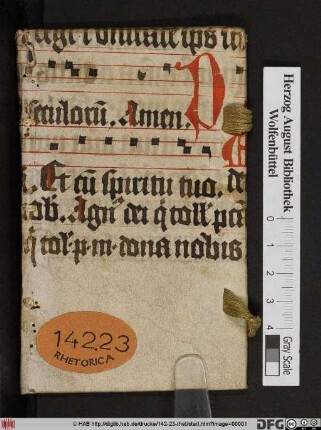 seculorū. Amen. P
Et cū spiritu tuo. de
ab. Agn⁹ dei q̄ toll' pctā
q̄ tol' p. m. dona nobis
14223
RHETORICA
Herzog August Bibliothek
Wolfenbüttel
0
1
2
3
4
Gray Scale
© HAB http://diglib.hab.de/drucke/142-23-rhet/start.htm?image=00001
DFG